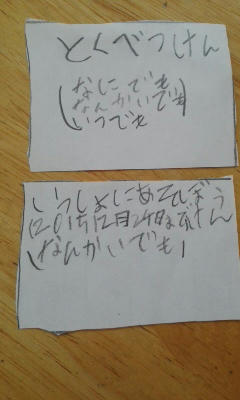 とくべつけん
(なにでも
なんかいでも)
いつでも
いっしょにあそぼう
(2015 12月24日まで けん
なんかいでも)